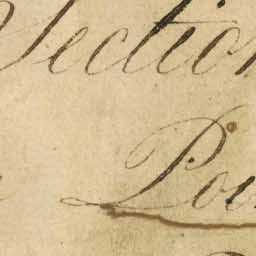 Section
Poi